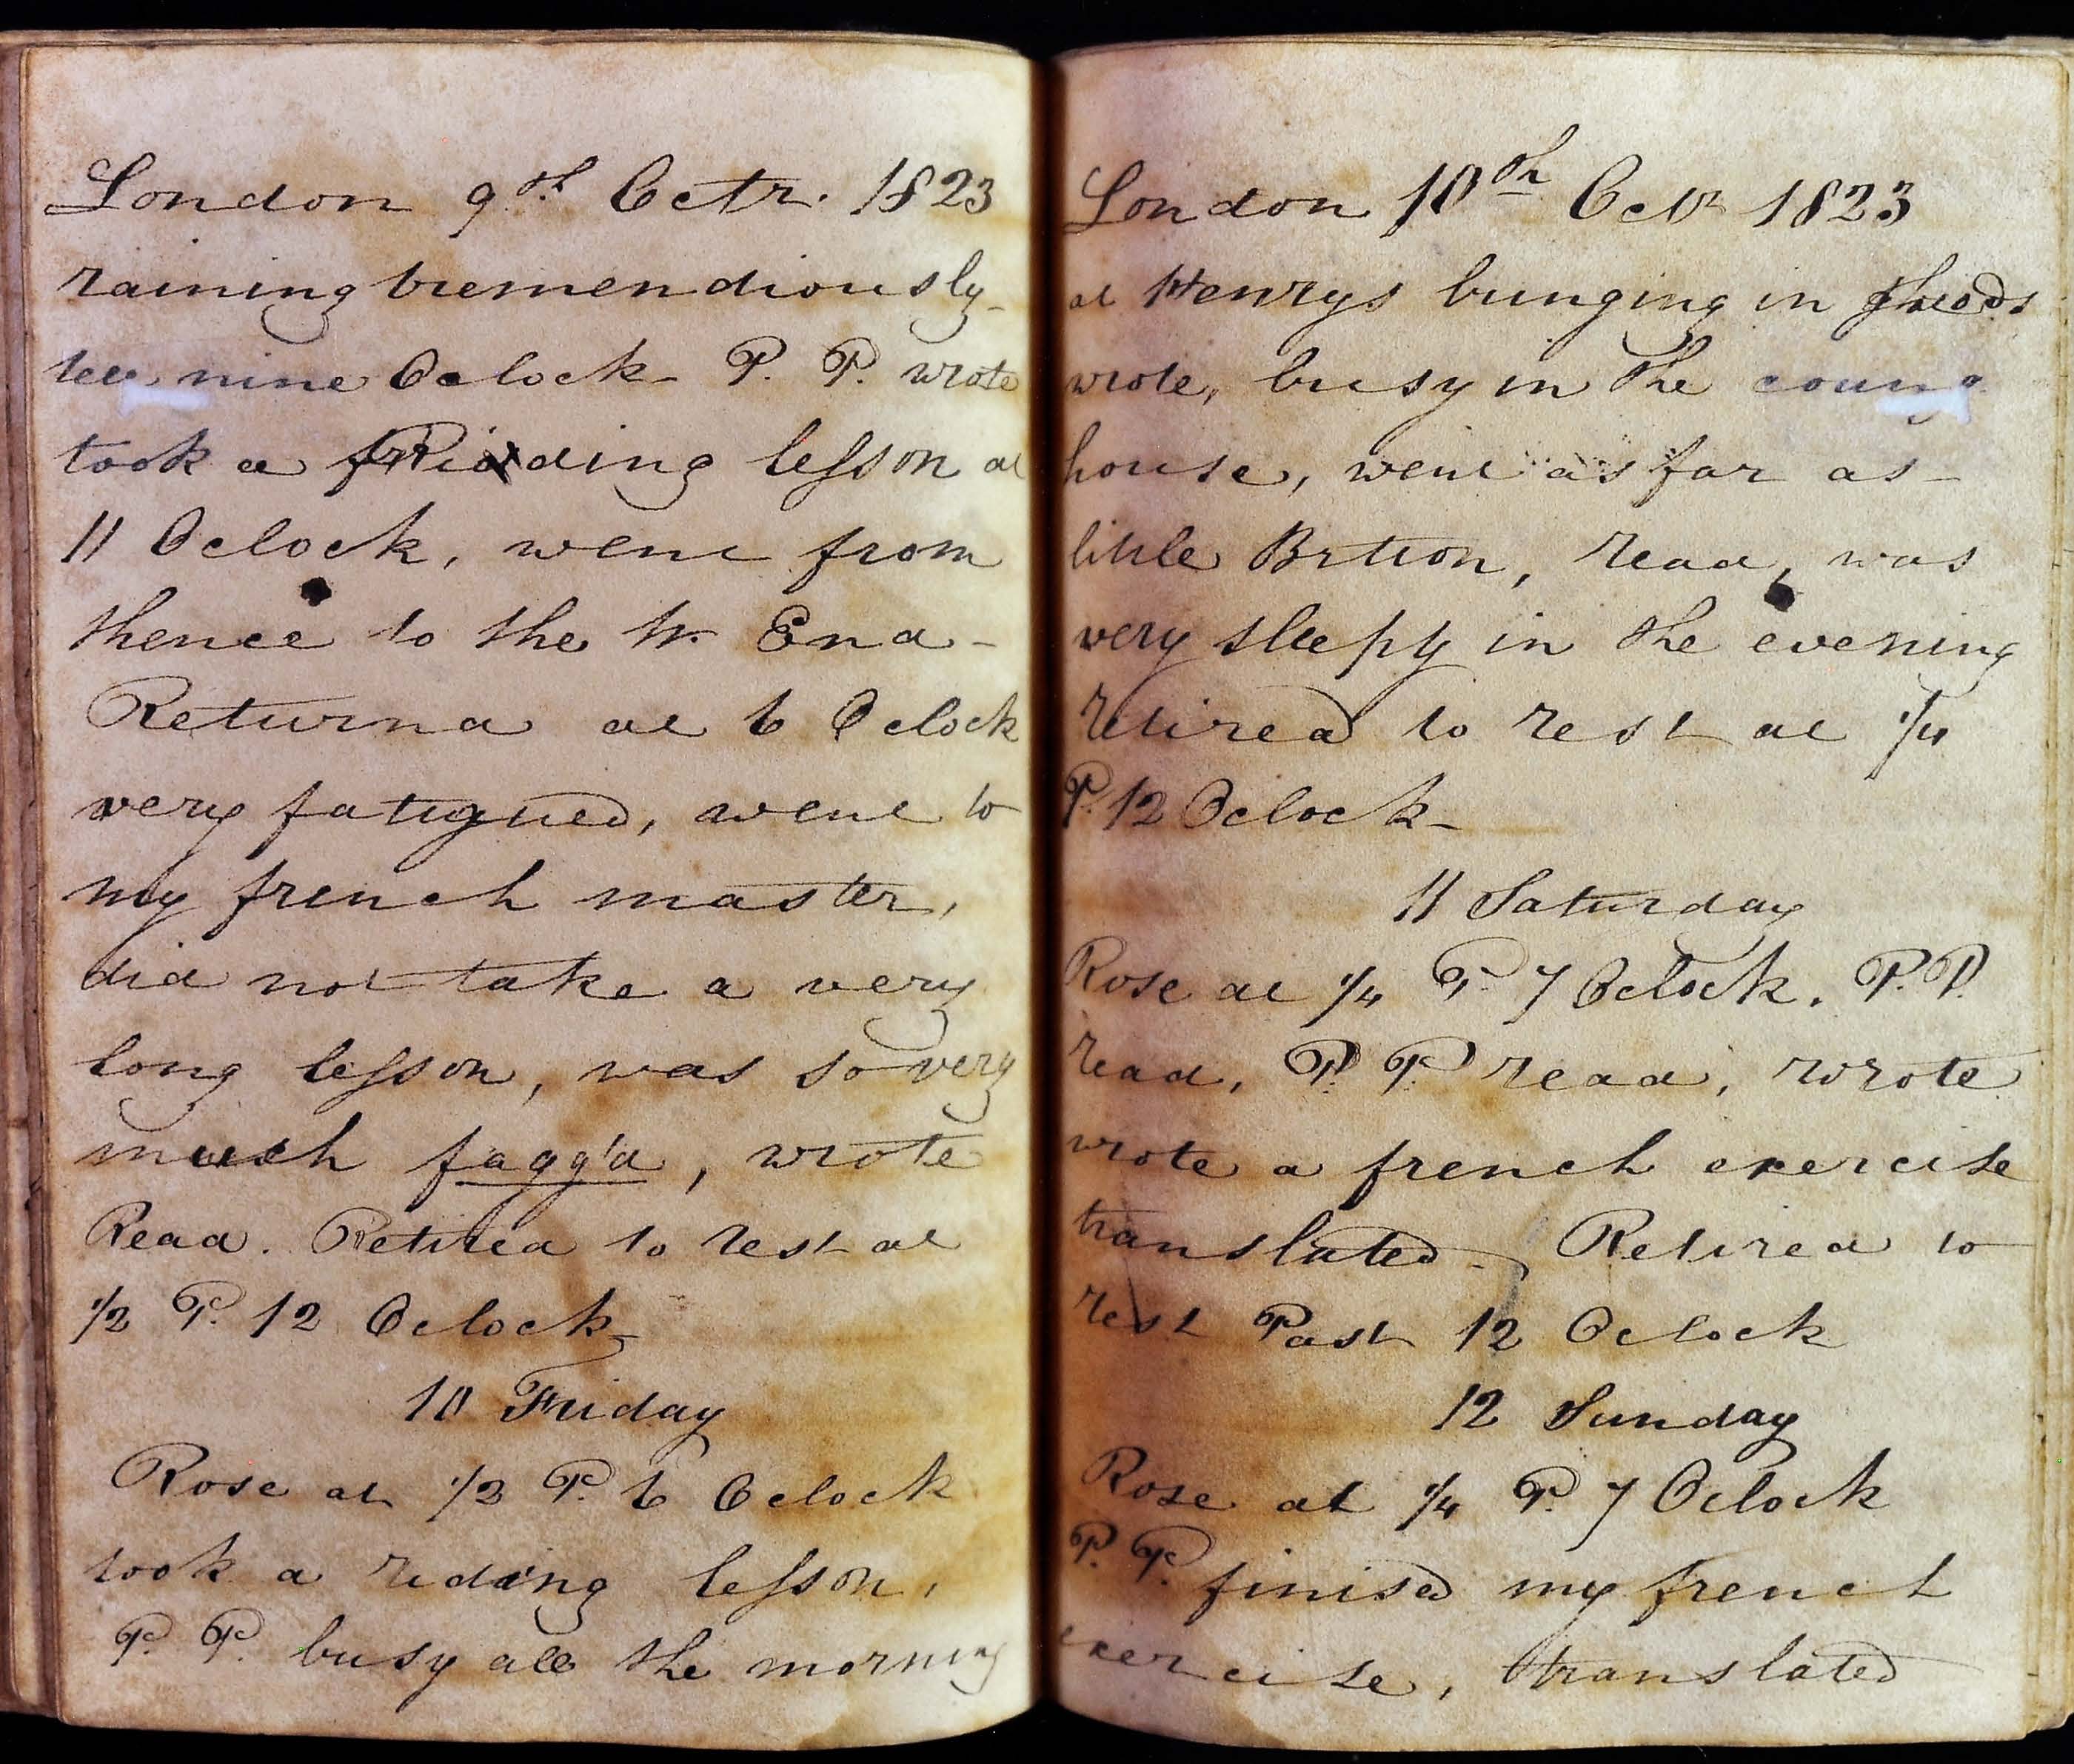 London 9th Octr. 1823
raining tremendiously
till nine Oclock - P. P. wrote
took a Riding lesson at
11 Oclock, went from
thence to the W. End -
Returnd at 6 Oclock
very fatigued, went to
my french master,
did not take a very
long lesson, was so very
much fagg'd, wrote
Read. Retired to rest at
1/2 P. 12 Oclock -
10 Friday
Rose at 1/2 P. 6 Oclock
took a riding lesson,
P. P. busy all the morning
London 10th Octr 1823
at Henrys bunging in
wrote, busy in the
house, went as far as -
little read, was
very sleepy in the evening
retired to rest at 1/4
P. 12 Oclock -
11 Saturday
Rose at 1/4 P. 7 Oclock. P. P.
read, P. P. read, wrote
wrote a french exercise
translated - Retired to
rest Past 12 Oclock
12 Sunday
Rose at 1/4 P. 7 Oclock
P. P. finised my french
exercise, translated